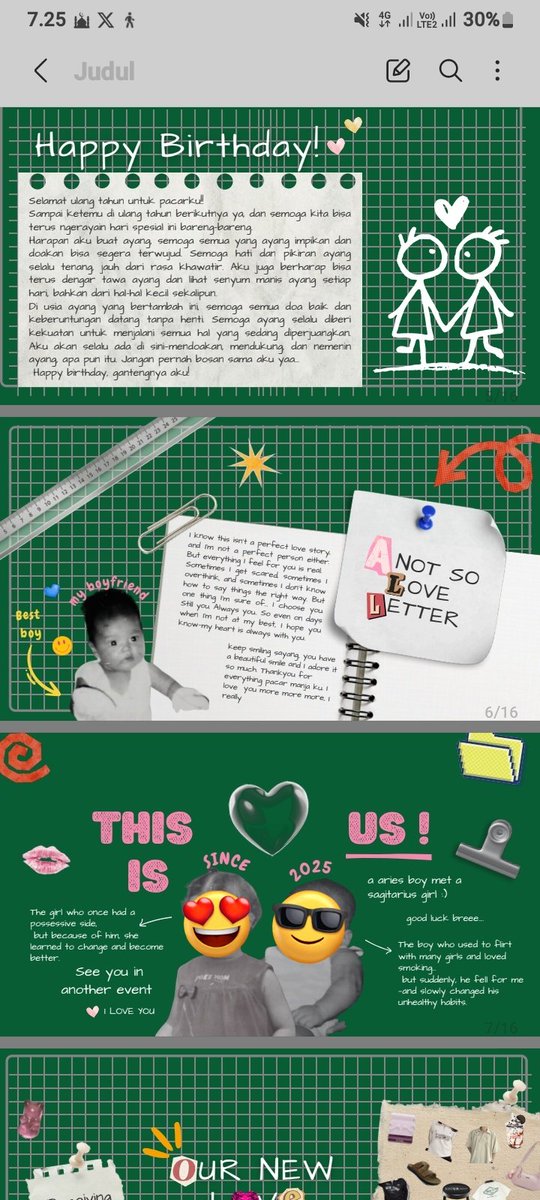 7.25
4G
Vo))
LTE2
30%
Judul
Happy Birthday!
Selamat ulang tahun untuk pacarku!!
Sampai ketemu di ulang tahun berikutnya ya, dan semoga kita bisa
terus ngerayain hari spesial ini bareng-bareng.
Harapan aku buat ayang, semoga semua yang ayang impikan dan
doakan bisa segera terwujud. Semoga hati dan pikiran ayang
selalu tenang, jauh dari rasa khawatir. Aku juga berharap bisa
terus dengar tawa ayang dan lihat senyum manis ayang setiap
hari, bahkan dari hal-hal kecil sekalipun.
Di usia ayang yang bertambah ini, semoga semua doa baik dan
keberuntungan datang tanpa henti. Semoga ayang selalu diberi
kekuatan untuk menjalani semua hal yang sedang diperjuangkan.
Aku akan selalu ada di sini-mendoakan, mendukung, dan nemenin
ayang, apa pun itu. Jangan pernah bosan sama aku yaa..
Happy birthday, gantengnya aku!
5/16
A NOT SO
LOVE
LETTER
I know this isn't a perfect love story,
and i'm not a perfect person either.
But everything I feel for you is real.
Sometimes I get scared, sometimes I
overthink, and sometimes I don't know
how to say things the right way. But
one thing I'm sure of.. I choose you.
Still you. Always you. So even on days
when I'm not at my best, I hope you
know-my heart is always with you.
keep smiling sayang, you have
a beautiful smile and I adore it
so much. Thankyou for
everything pacar manja ku. I
love you more more more, I
really
my boyfriend
Best
boy
6/16
THIS
IS
US !
SINCE
2025
a aries boy met a
sagitarius girl :)
good luck breee...
The girl who once had a
possessive side,
but because of him, she
learned to change and become
better.
See you in
another event
I LOVE YOU
The boy who used to flirt
with many girls and loved
smoking..
but suddenly, he fell for me
-and slowly changed his
unhealthy habits.
7/16
OUR NEW